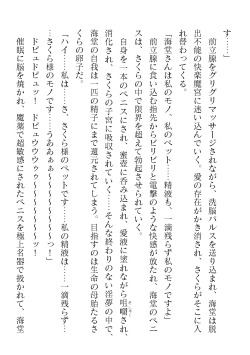 す……」
前立腺をグリグリマッサージされながら、洗脳パルスを送り込まれ、海堂は脱
出不能の快楽魔宮に迷い込んでいく。愛の存在がかき消され、さくらがそこに人
れ替わってくる。
「海堂さんは私のモノ、私のペット……精液も、一滴残らず私のモノですよ」
前立腺に食い込む指先からビリビリと電撃のような快感が放たれ、海堂のペニ
スは、さくらの中で限界を超えて勃起させられていく。
自身を一本のペニスにされ、蜜壺に呑み込まれ、愛液に塗れながら咀嚼され、
消化され、さくらの子宮に吸収されていく……そんな終わりのない淫夢の中で、
海堂の自我は一匹の精子にまで還元されてしまう。目指すのは生命の母胎たるさ
くらの卵子だ。
「ハイ……私は……さ、さくら様のペットです……私の精液は……一滴残らず…
…さくら様のモノです……うああぁぁ～～～～～～～～っ！」
ドピュドピュッ！　ドピュウウウゥゥ～～～～～～～ッ！
催眠に脳を焼かれ、魔薬で超敏感にされたペニスを極上名器で嬲かれて、海堂